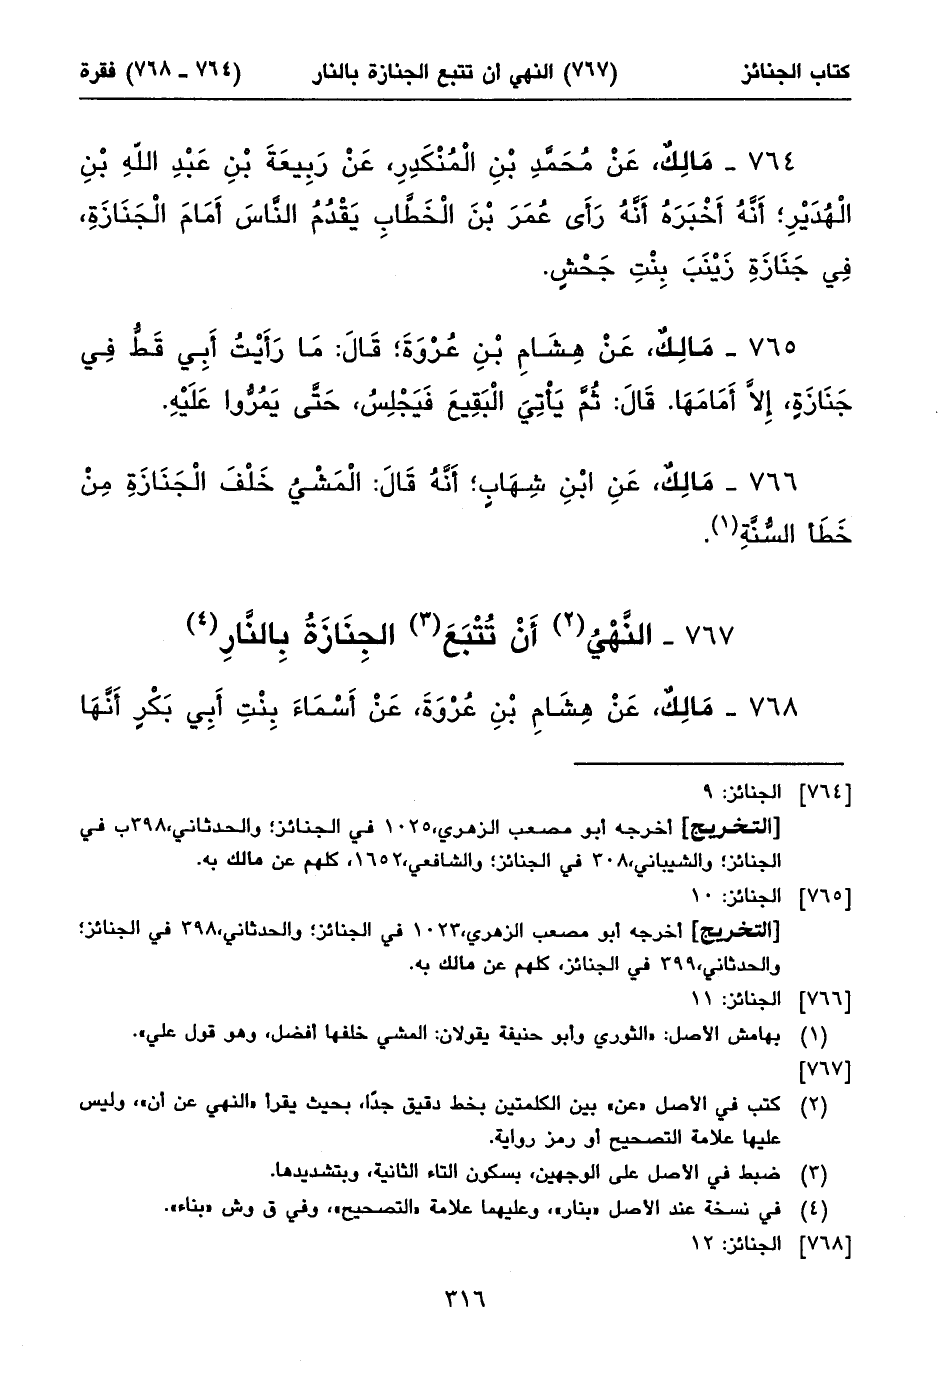 كتاب الجنائز (٧٦٧) النهي أن تتبع الجنازة بالنار (٧٦٤ ـ ٧٦٨) فقرة
٧٦٤ ـ مَالِكٌ، عَنْ مُحَمَّدِ بْنِ الْمُنْكَدِرِ، عَنْ رَبِيعَةَ بْنِ عَبْدِ اللّهِ بْنِ
الْهُدَيْرِ؛ أَنَّهُ أَخْبَرَهُ أَنَّهُ رَأَى عُمَرَ بْنَ الْخَطَّابِ يَقْدُمُ النَّاسَ أَمَامَ الْجَنَازَةِ،
فِي جَنَازَةِ زَيْنَبَ بِنْتِ جَحْشٍ.
٧٦٥ ـ مَالِكٌ، عَنْ هِشَامِ بْنِ عُرْوَةَ؛ قَالَ: مَا رَأَيْتُ أَبِي قَطُّ فِي
جَنَازَةٍ، إِلاَّ أَمَامَهَا. قَالَ: ثُمَّ يَأْتِيَ الْبَقِيعَ فَيَجْلِسُ، حَتَّى يَمُرُّوا عَلَيْهِ.
٧٦٦ ـ مَالِكٌ، عَنِ ابْنِ شِهَابٍ؛ أَنَّهُ قَالَ: الْمَشْيُ خَلْفَ الْجَنَازَةِ مِنْ
خَطَأ السُّنَّةِ(١).
٧٦٧ ـ النَّهْيُ(٢) أَنْ تُتْبَعَ(٣) الجِنَازَةُ بِالنَّارِ(٤)
٧٦٨ ـ مَالِكٌ، عَنْ هِشَامِ بْنِ عُرْوَةَ، عَنْ أَسْمَاءَ بِنْتِ أَبِي بَكْرٍ أَنَّهَا
[٧٦٤] الجنائز: ٩
[التخريج] أخرجه أبو مصعب الزهري،١٠٢٥ في الجنائز؛ والحدثاني،٣٩٨ب في
الجنائز؛ والشيباني،٣٠٨ في الجنائز؛ والشافعي،١٦٥٢، كلهم عن مالك به.
[٧٦٥] الجنائز: ١٠
[التخريج] أخرجه أبو مصعب الزهري،١٠٢٣ في الجنائز؛ والحدثاني،٣٩٨ في الجنائز؛
والحدثاني،٣٩٩ في الجنائز، كلهم عن مالك به.
[٧٦٦] الجنائز: ١١
(١) بهامش الأصل: «الثوري وأبو حنيفة يقولان: المشي خلفها أفضل، وهو قول علي».
[٧٦٧]
(٢) كتب في الأصل «عن» بين الكلمتين بخط دقيق جدًا، بحيث يقرأ «النهي عن أن»، وليس
عليها علامة التصحيح أو رمز رواية.
(٣) ضبط في الأصل على الوجهين، بسكون التاء الثانية، وبتشديدها.
(٤) في نسخة عند الأصل «بنار»، وعليهما علامة «التصحيح»، وفي ق وش «بناء».
[٧٦٨] الجنائز: ١٢
٣١٦